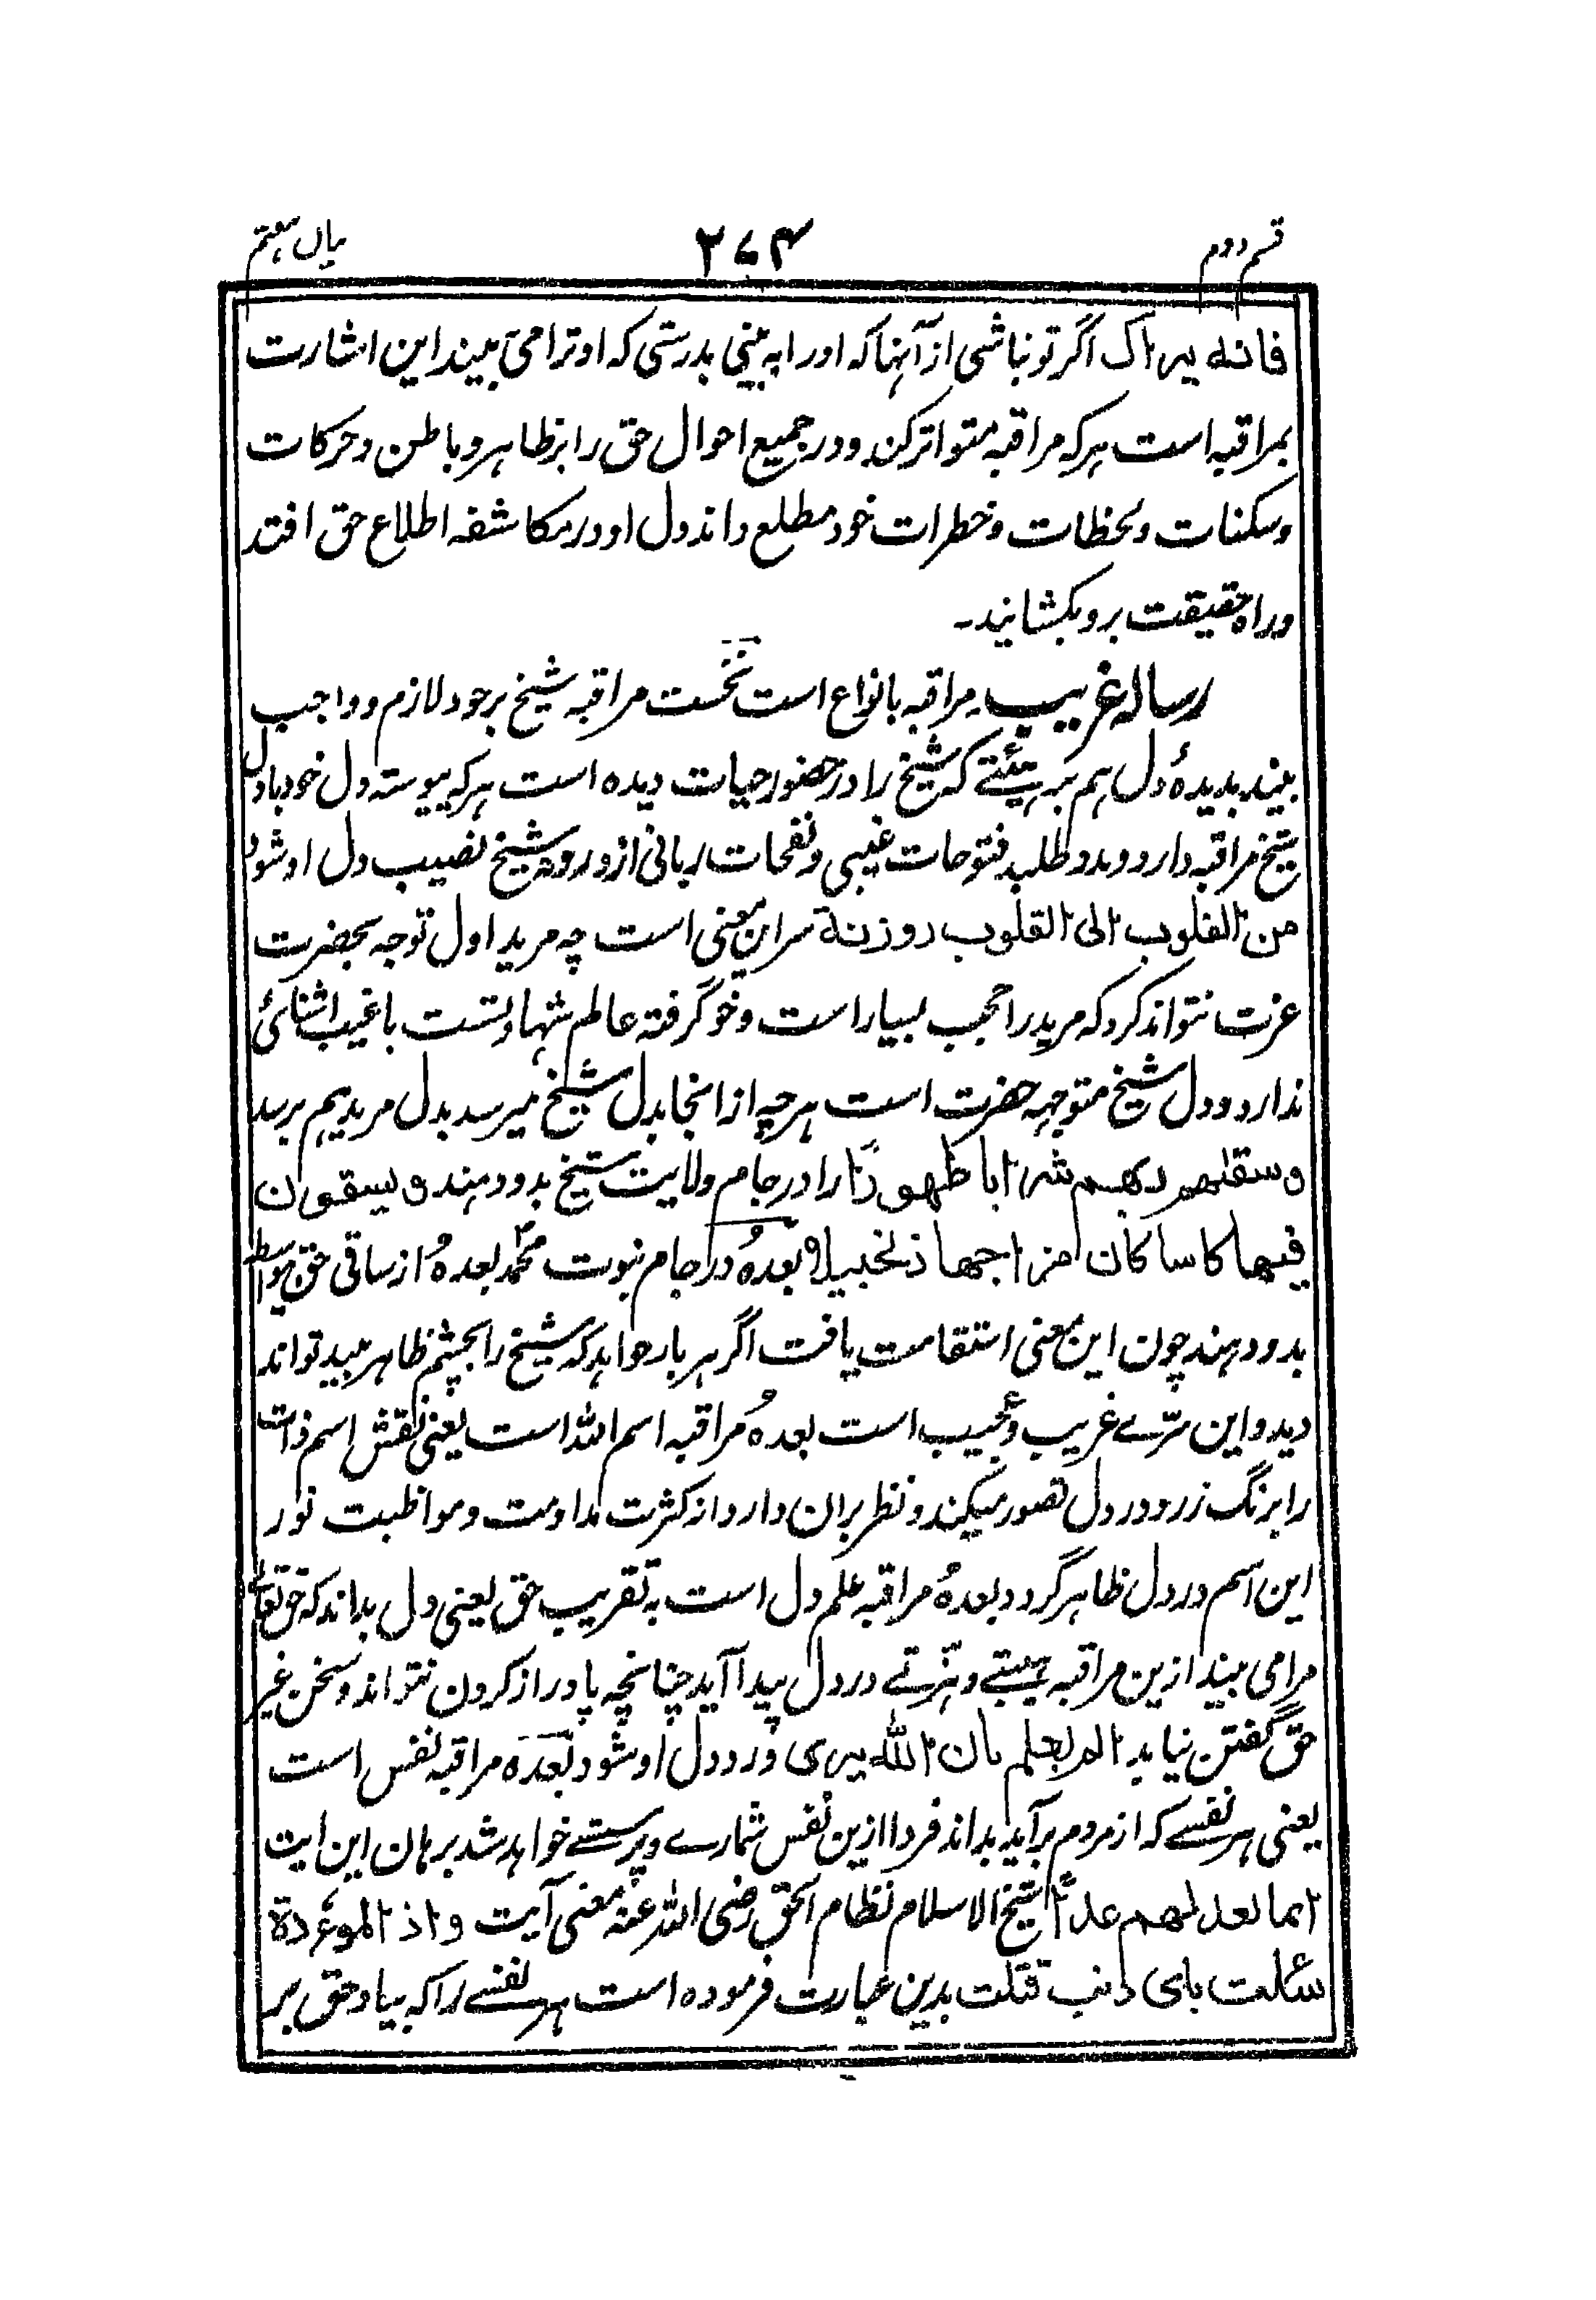 قسم دوم ۲۷۴ بیان هفتم
فانه یراک اگر تو نباشی از آنها که او را به بینی بدرستی که او ترا می بیند این اشارت
بمراقبه است هرکه مراقبه متواتر کند و در جمیع احوال حق را بر ظاهر و باطن و حرکات
و سکنات و لحظات و خطرات خود مطلع داند دل او در مکاشفه اطلاع حق افتد
و راه حقیقت برو بکشایند۔
رساله غریب۔ مراقبه بانواع است نخست مراقبه شیخ بر خود لازم و واجب
بیند بدیدهٔ دل هم بر هیئتے که شیخ را در حضور حیات دیده است هرکه پیوسته دل خود با دل
شیخ مراقبه دارد و مدد طلبد فتوحات غیبی و نفحات ربانی از دروهٔ شیخ نصیب دل او شود
من القلوب الی القلوب روزنة سر این معنی است چه مرید اول توجه بحضرت
عزت نتواند کرد که مرید را حجب بسیار است و خو گرفته عالم شهادتست با غیب اشنائیٔ
ندارد و دل شیخ متوجهه حضرت است هرچه از انجا بدل شیخ میرسد بدل مرید هم برسد
و سقٰهم ربهم شرابا طهورًا را در جام ولایت شیخ بدو دهند و یسقون
فیها کاسا کان مزاجها زنجبیلا و بعدهٗ در جام نبوت محمدؐ بعدهٗ از ساقی حق بیواسطه
بدو دهند چون این معنی استقامت یافت اگر هر بار خواهد که شیخ را بچشم ظاهر بیند تواند
دید و این سرّے غریب و عجیب است بعدهٗ مراقبه اسم الله است یعنی نقش اسم ذات
را برنگ زر در دل تصور میکند و نظر بران دارد از کثرت مداومت و مواظبت نور
این اسم در دل ظاهر گردد و بعدهٗ مراقبه علم دل است به تقریب حق یعنی دل بداند که حق تعالی
مرا می بیند ازین مراقبه هیبتے و هزتے در دل پیدا آید چنانچه پا دراز کردن نتواند و سخن غیر
حق گفتن نیاید الم یعلم بان الله یری ورد دل او شود بعدهٗ مراقبه نفس است
یعنی هر نفسے که از مردم برآید بداند فردا ازین نفس شمارے و پرسشے خواهد شد برهان این ایت
انما نعد لهم عدًا شیخ الاسلام نظام الحق رضی الله عنه معنی آیت و اذا الموءدة
سئلت بای ذنب قتلت بدین عبارت فرموده است هر نفسے را که بیاد حق بر